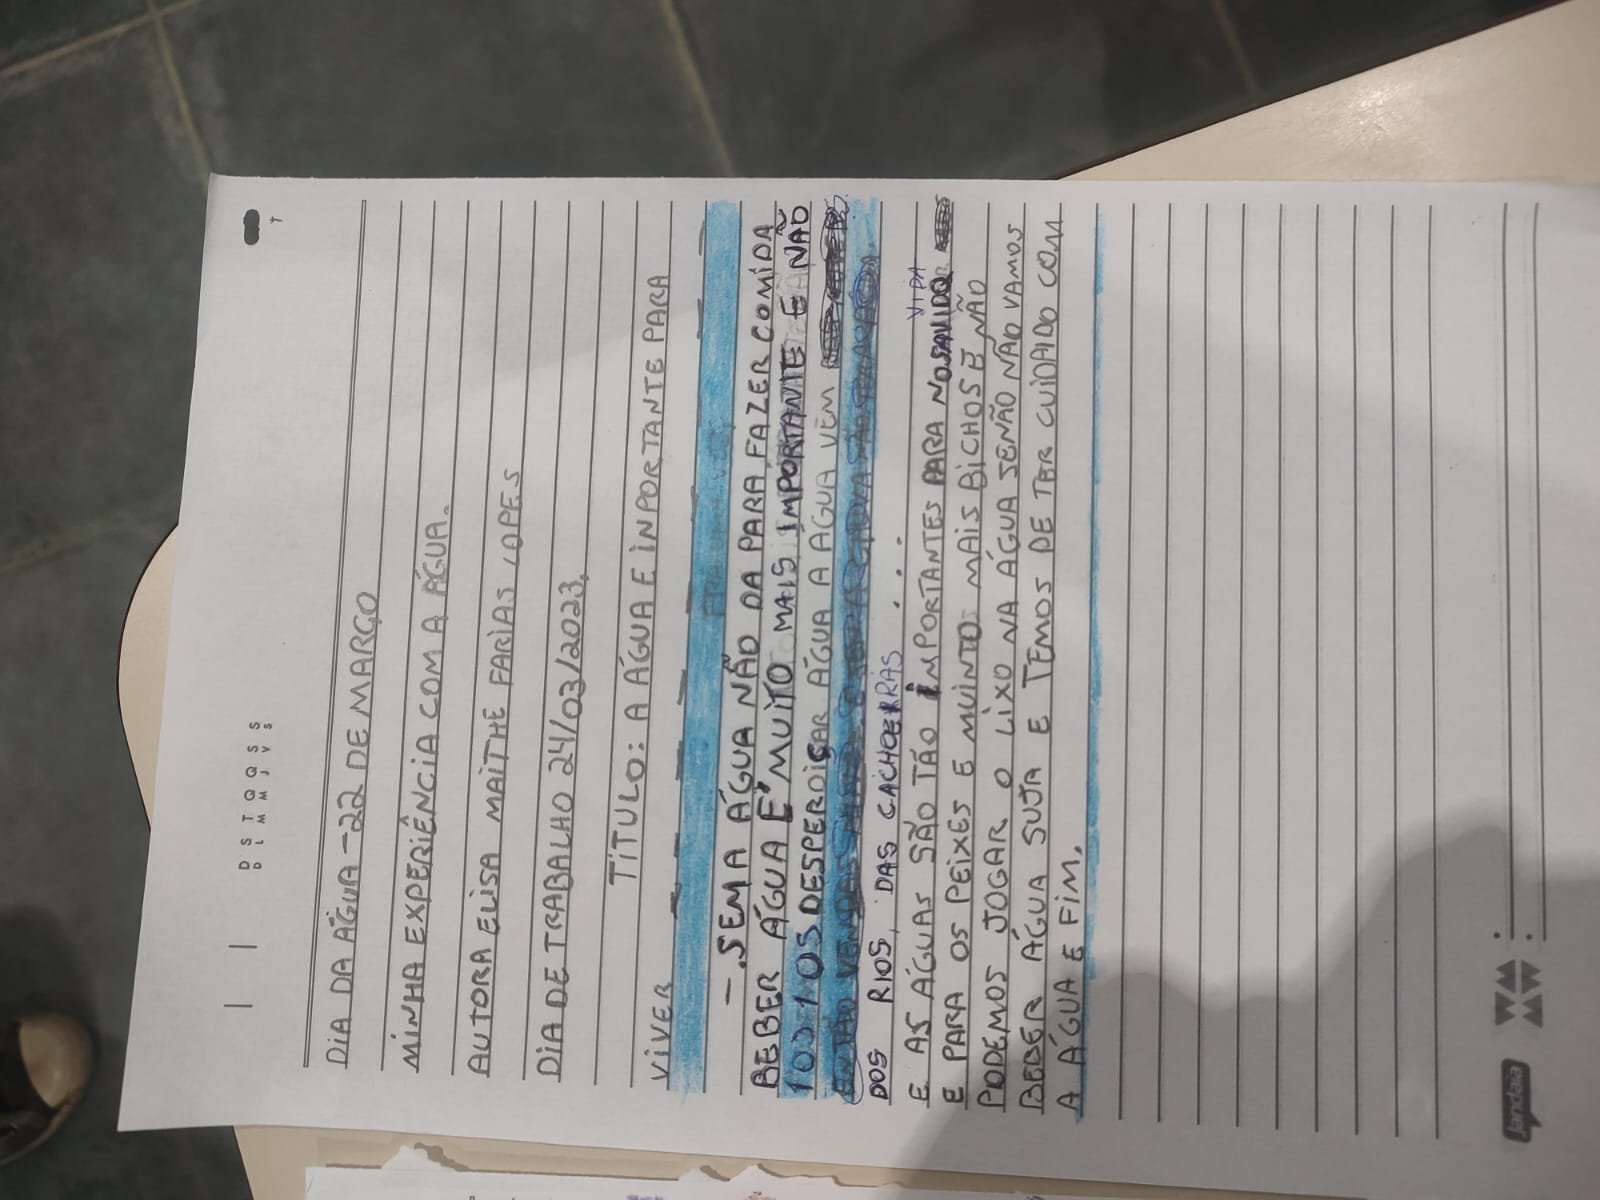 D S T Q Q S S
D L M M J V S
DIA DA ÁGUA - 22 DE MARÇO
MINHA EXPERIÊNCIA COM A ÁGUA.
AUTORA ELISA MAITHE FARIAS LOPES
DIA DE TRABALHO 24/03/2023.
TÍTULO: A ÁGUA E INPORTANTE PARA
VIVER
- .SEM A ÁGUA NÃO DA PARA FAZER COMIDA
BEBER ÁGUA É MUITO MAIS IMPORTANTE E NÃO
DESPERDIÇAR ÁGUA A ÁGUA VEM
DOS RIOS, DAS CACHOERRAS
E AS ÁGUAS SÃO TÃO IMPORTANTES PARA NOSA VIDA
E PARA OS PEIXES E MUINTO MAIS BICHOS E NÃO
PODEMOS JOGAR O LIXO NA ÁGUA SENÃO NÃO VAMOS
BEBER ÁGUA SUJA E TEMOS DE TER CUIDADO COM
A ÁGUA E FIM.
Jandaia